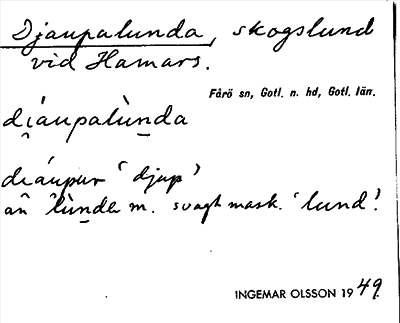 Djaupalunda, skogslund
vid Hamars.
Fårö sn, Gotl. n. hd, Gotl. län.
di̯áupalùn̲da
di̯áupur ‘djup’
an lùn̲da m. svagt mask. ‘lund’.
INGEMAR OLSSON 1949.